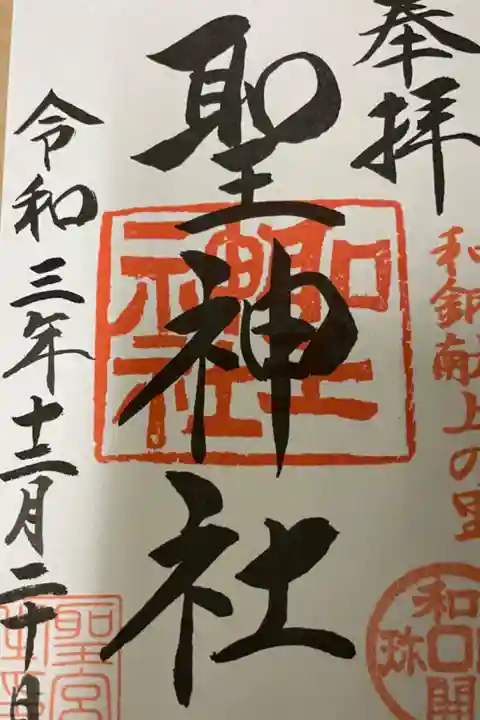 奉拝
和銅献上の里
和同開珎
聖神社
聖神社
令和三年十二月二十日
聖宮